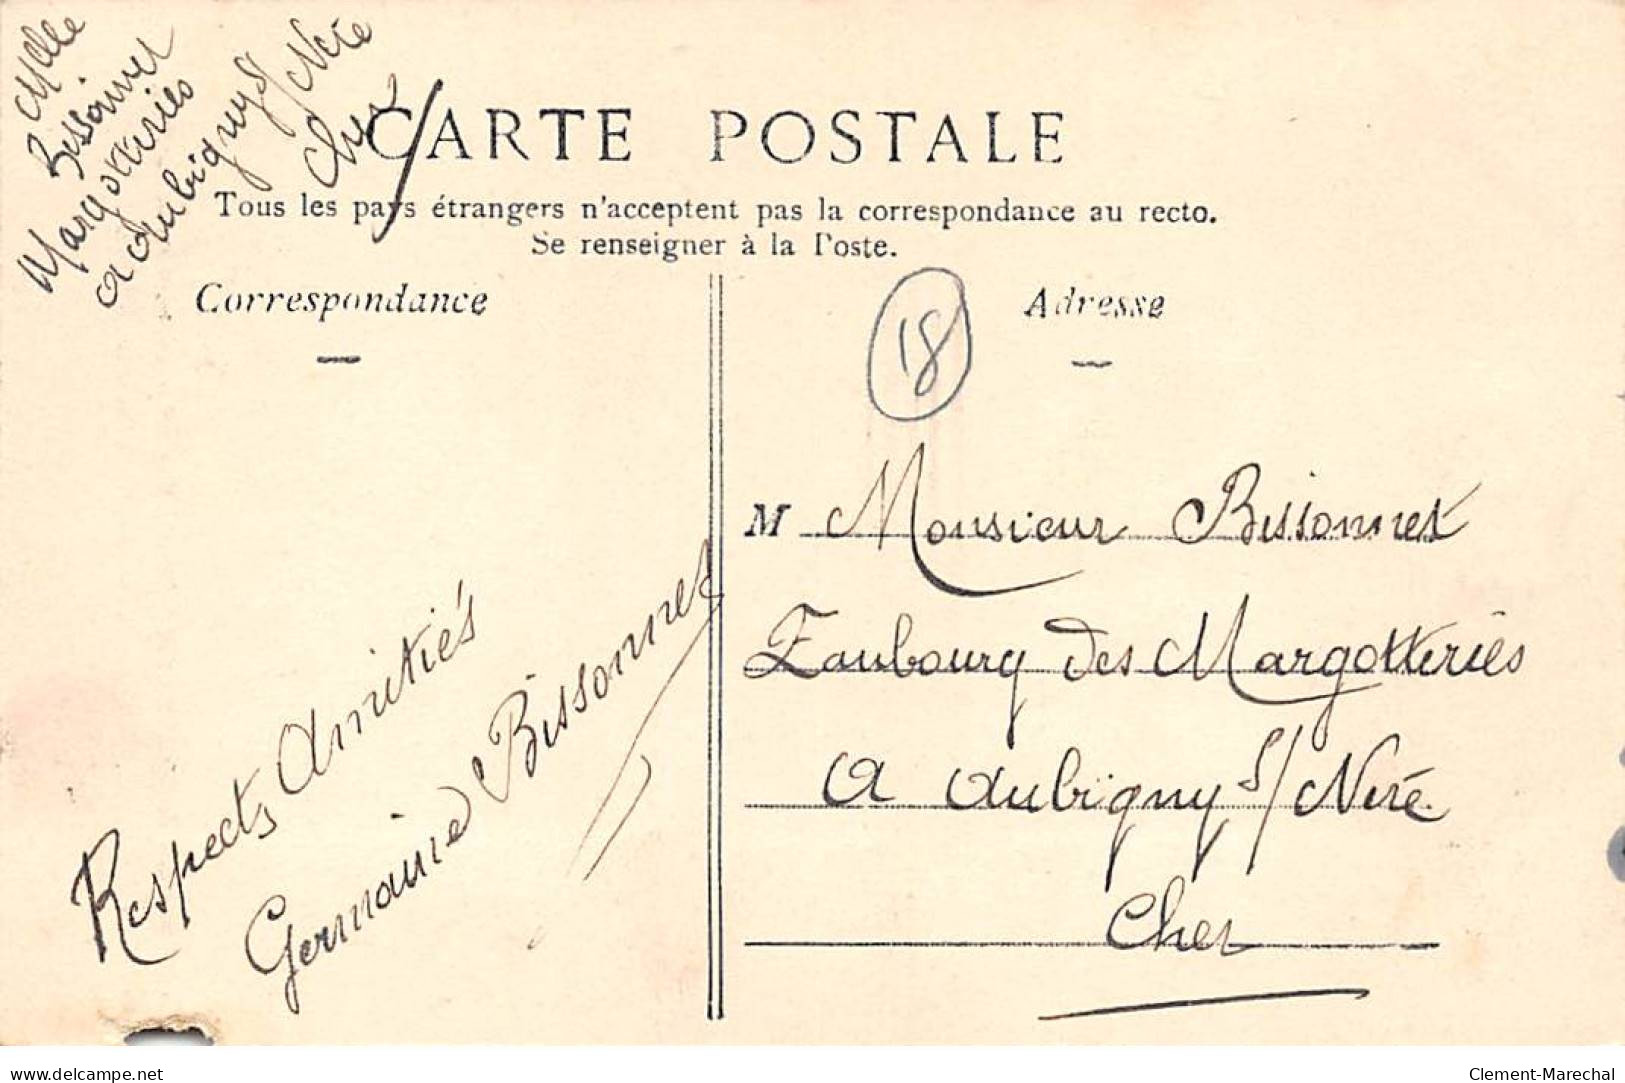 Melle
Bissonnet
Margotteries
a Aubigny s/ Nère
Cher
CARTE POSTALE
Tous les pays étrangers n'acceptent pas la correspondance au recto.
Se renseigner à la Poste.
Correspondance
Adresse
18
M Monsieur Bissonnet
Faubourg des Margotteries
A Aubigny s/ Nère
Cher
Respects Amitiés
Germaine Bissonnet
www.delcampe.net
Clement-Marechal